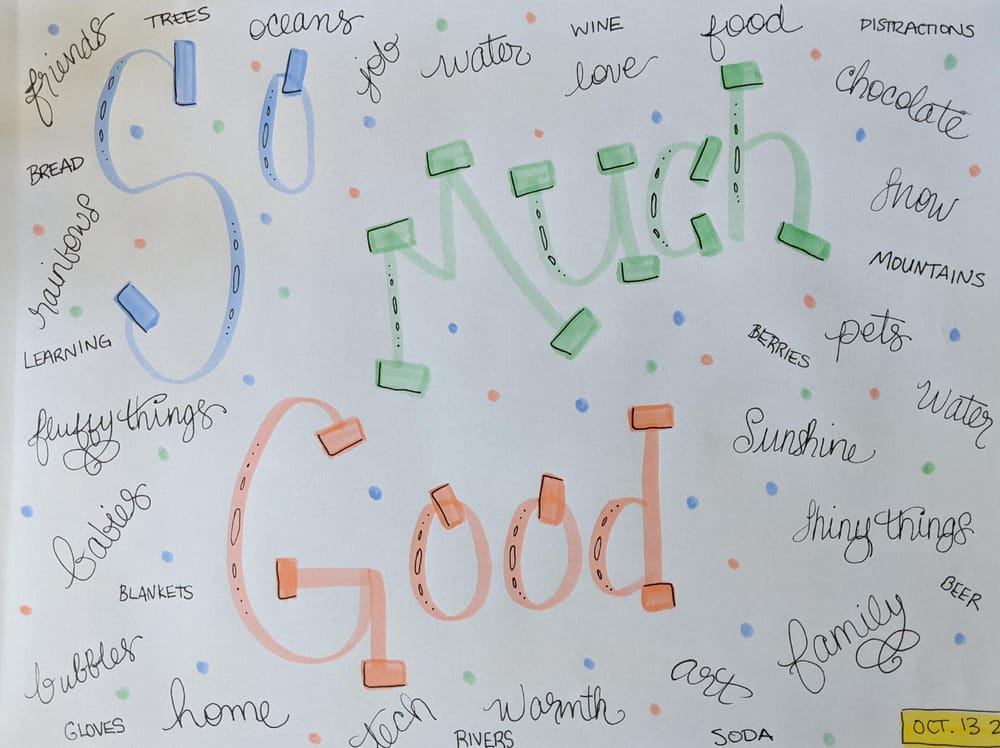 friends
TREES
oceans
job
water
WINE
love
food
DISTRACTIONS
chocolate
So
Much
Good
BREAD
rainbows
LEARNING
fluffy things
babies
BLANKETS
bubbles
GLOVES
home
tech
RIVERS
Warmth
art
SODA
snow
MOUNTAINS
pets
BERRIES
Water
Sunshine
shiny things
BEER
family
OCT. 13 2